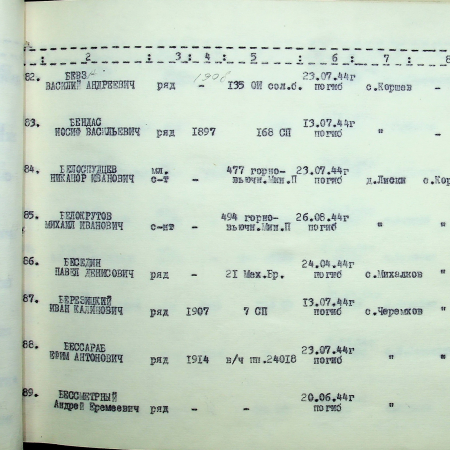 2 : 3 : 4 : 5 : 6 : 7 : 8
82. БЕВЗ 1906 23.07.44г
ВАСИЛИЙ АНДРЕЕВИЧ ряд - 135 ОИ сол.б. погиб с.Коршев -
83. БЕНДАС 13.07.44г
ИОСИФ ВАСИЛЬЕВИЧ ряд 1897 168 СП погиб " -
84. БЕЛОСЛУДЦЕВ мл. 477 горно- 23.07.44г
НИКАНОР ИВАНОВИЧ с-т - вьючн.Мин.П погиб д.Лиски с.Кор
85. БЕЛОКРУТОВ 494 горно- 26.08.44г
МИХАИЛ ИВАНОВИЧ с-нт - вьючн.Мин.П погиб " "
86. БЕСЕДИН 24.04.44г
ПАВЕЛ ДЕНИСОВИЧ ряд - 21 Мех.Бр. погиб с.Михалков "
87. БЕРЕЗИЦКИЙ 13.07.44г
ИВАН КАЛИНОВИЧ ряд 1907 7 СП погиб с.Черемхов "
88. БЕССАРАБ 23.07.44г
ЕФИМ АНТОНОВИЧ ряд 1914 в/ч пп.24018 погиб " "
89. БЕССМЕТРНЫЙ 20.06.44г
Андрей Еремеевич ряд - - погиб "